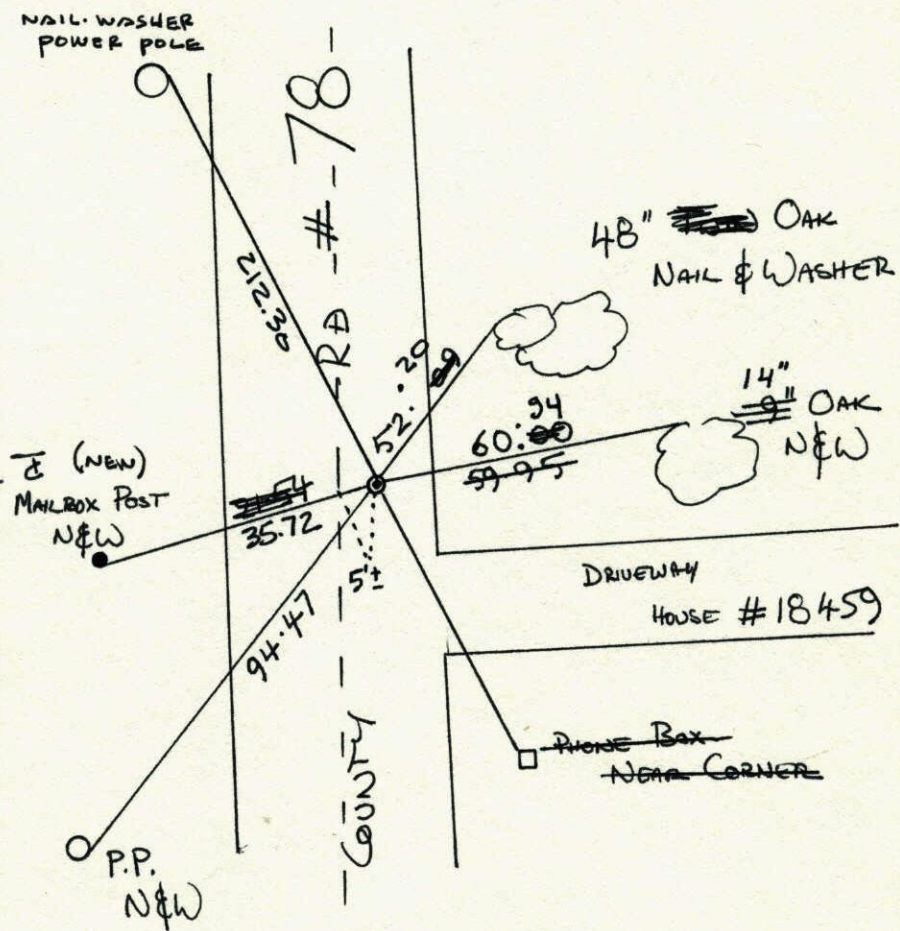 NAIL. WASHER
POWER POLE
COUNTY RD # 78
212.30
48" OAK
NAIL & WASHER
52.20
14"
9" OAK
N&W
60.94
59.95
c̄ (NEW)
MAILBOX POST
N&W
35.72
5'±
94.47
DRIVEWAY
HOUSE # 18459
PHONE BOX
NEAR CORNER
P.P.
N&W